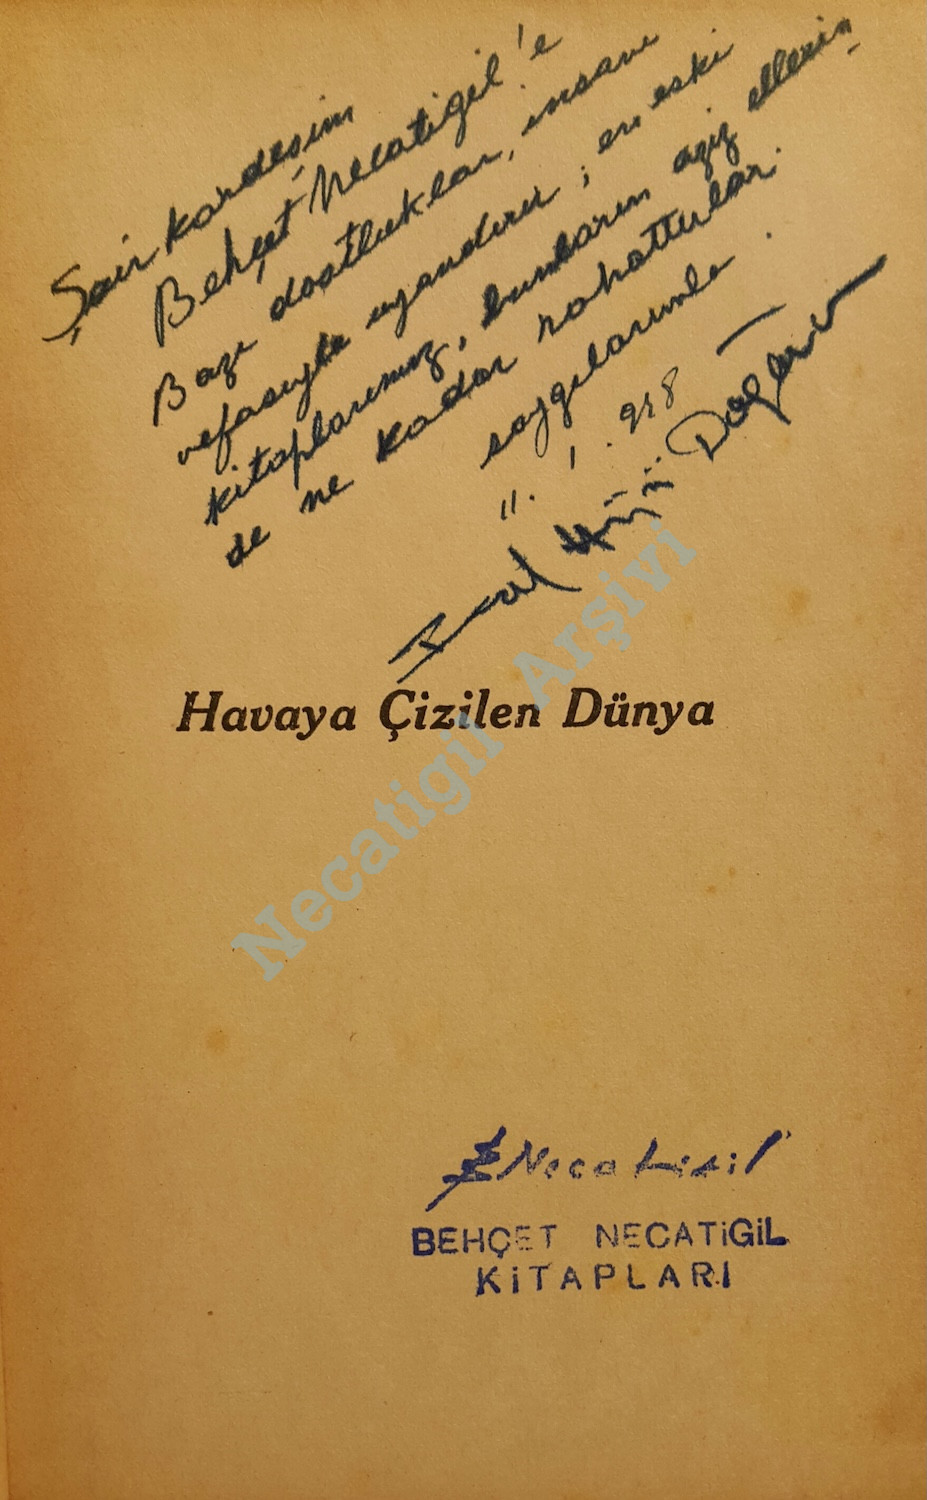 Şair kardeşim
Behçet Necatigil'e
Bazı dostluklar, insanı
vefasıyla uyandırır; en eski
kitaplarımız, bunların aziz ellerin
de ne kadar rahattırlar.
saygılarımla.
11.1.948
Fazıl Hüsnü Dağlarca
Havaya Çizilen Dünya
Necatigil Arşivi
BNecatigil
BEHÇET NECATİGİL
KİTAPLARI